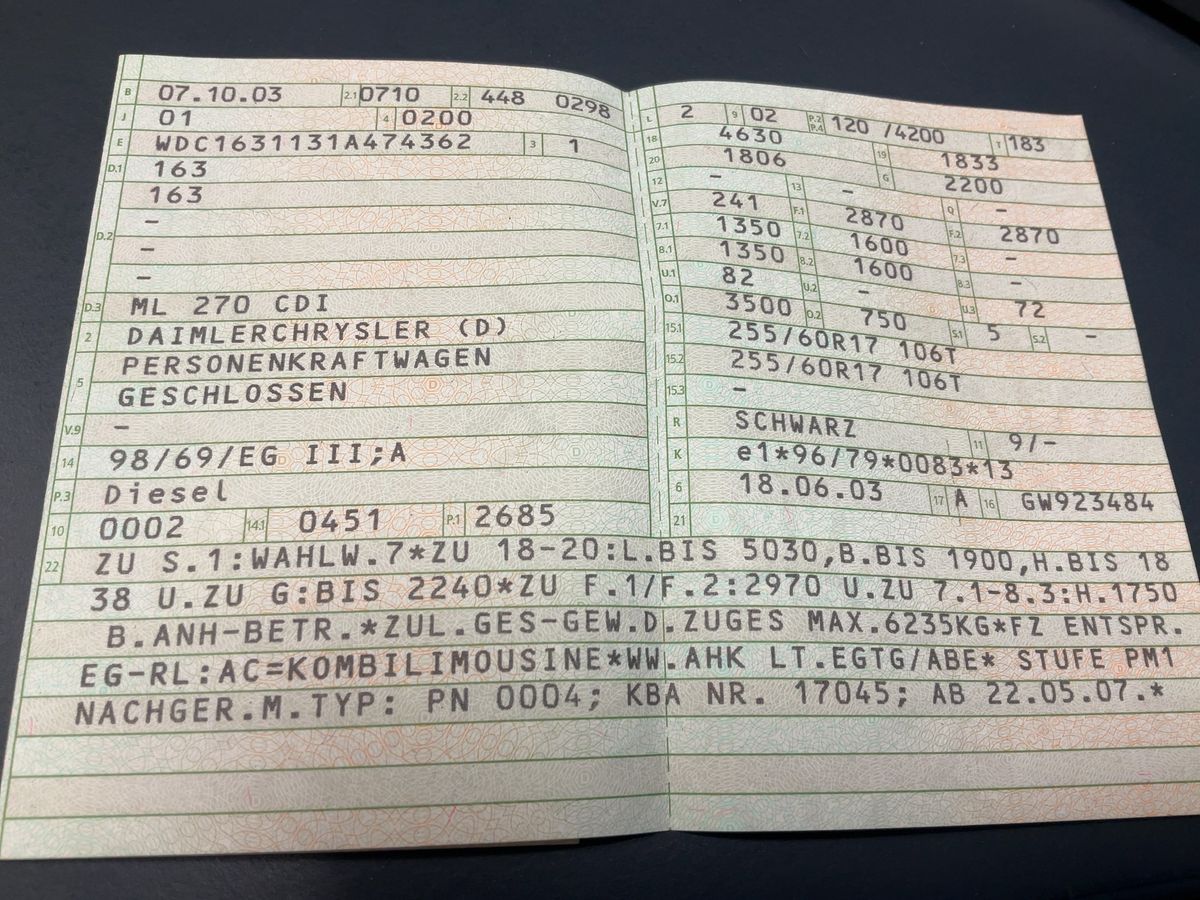 B 07.10.03 2.1 0710 2.2 448 0298
J 01 4 0200
E WDC1631131A474362 3 1
D.1 163
163
–
D.2 –
–
D.3 ML 270 CDI
2 DAIMLERCHRYSLER (D)
5 PERSONENKRAFTWAGEN
GESCHLOSSEN
V.9 –
14 98/69/EG III;A
P.3 Diesel
10 0002 14.1 0451 P.1 2685
L 2 9 02 P.2 P.4 120 /4200 T 183
18 4630 19 1833
20 1806 G 2200
12 – 13 – Q –
V.7 241 F.1 2870 F.2 2870
7.1 1350 7.2 1600 7.3 –
8.1 1350 8.2 1600 8.3 –
U.1 82 U.2 – U.3 72
O.1 3500 O.2 750 S.1 5 S.2 –
15.1 255/60R17 106T
15.2 255/60R17 106T
15.3 –
R SCHWARZ 11 9/–
K e1*96/79*0083*13
6 18.06.03 17 A 16 GW923484
21
22 ZU S.1:WAHLW.7*ZU 18-20:L.BIS 5030,B.BIS 1900,H.BIS 18
38 U.ZU G:BIS 2240*ZU F.1/F.2:2970 U.ZU 7.1-8.3:H.1750
B.ANH-BETR.*ZUL.GES-GEW.D.ZUGES MAX.6235KG*FZ ENTSPR.
EG-RL:AC=KOMBILIMOUSINE*WW.AHK LT.EGTG/ABE* STUFE PM1
NACHGER.M.TYP: PN 0004; KBA NR. 17045; AB 22.05.07.*